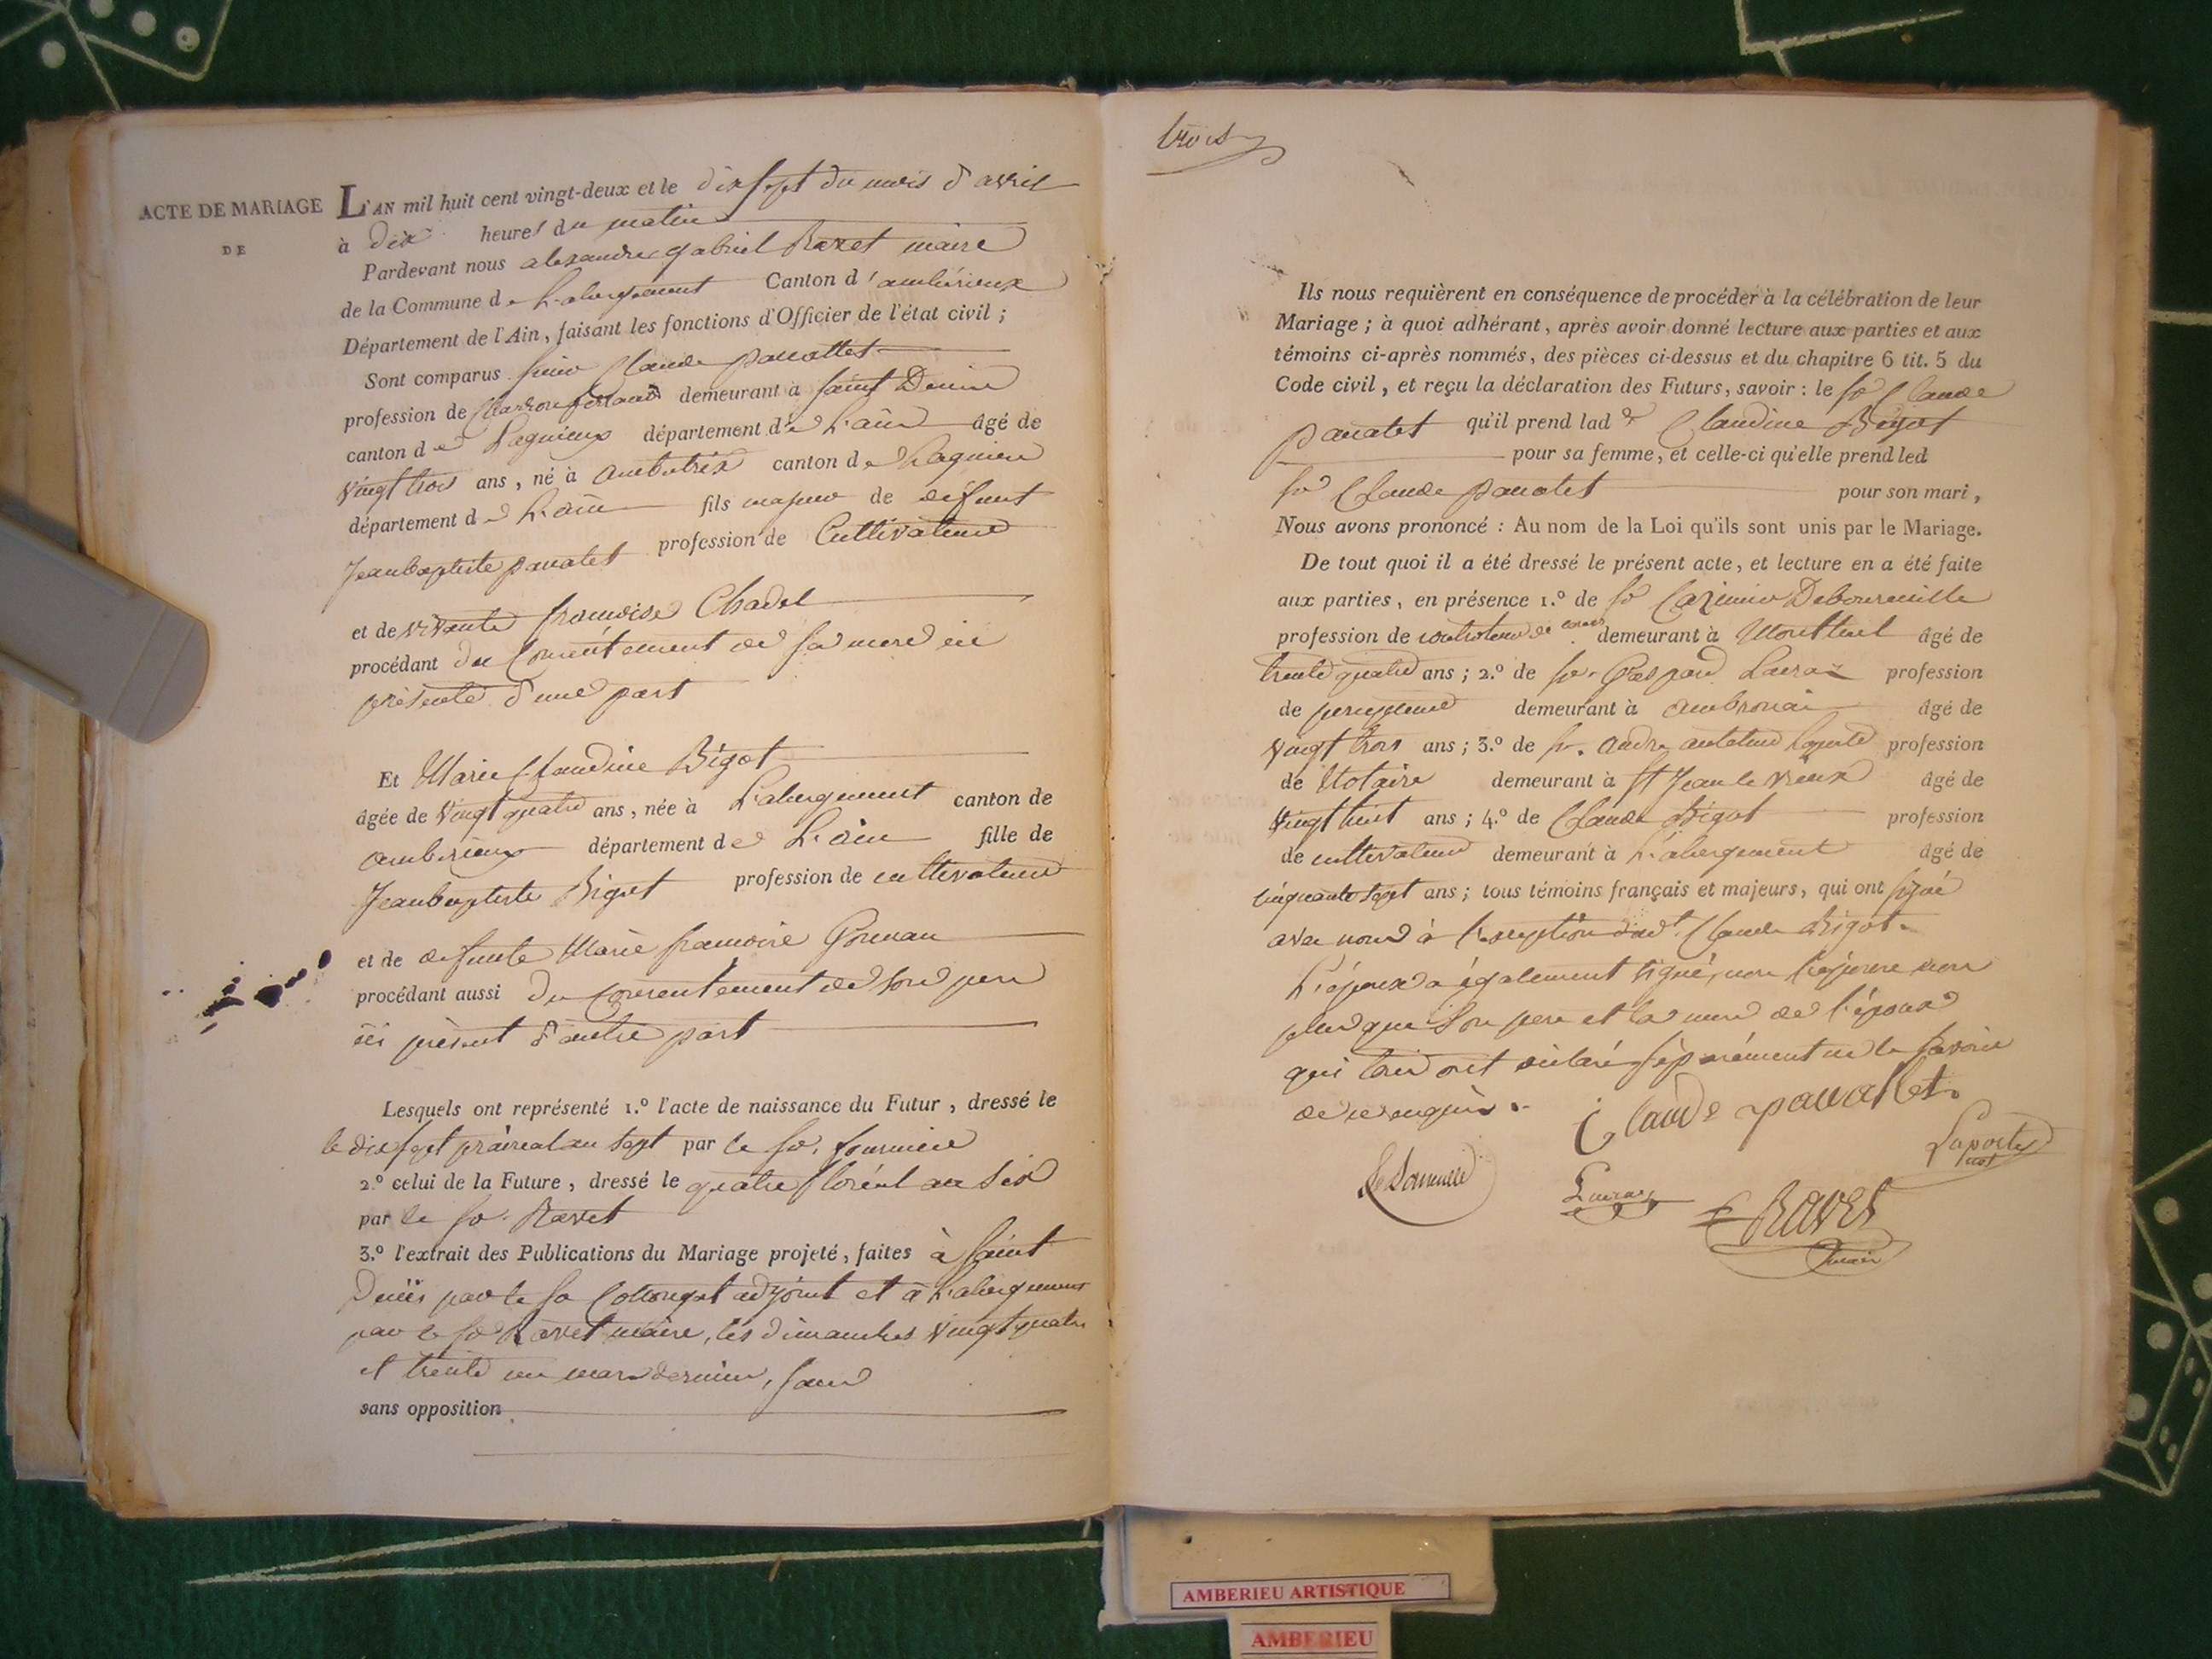 ACTE DE MARIAGE
DE
L'AN mil huit cent vingt-deux et le dix sept du mois d'avril
à dix heures du matin
Pardevant nous alexandre gabriel Ravet maire
de la Commune de L'abergement Canton d'ambérieux
Département de l'Ain, faisant les fonctions d'Officier de l'état civil ;
Sont comparus Claude panottet
profession de demeurant à saint Denis
canton de Lagnieux département de L'ain âgé de
vingt trois ans, né à ambutrix canton de Lagnieu
département de L'ain fils majeur de défunt
Jeanbaptiste panatet profession de Cultivateur
et de vivante francoise Chadel
procédant du Consentement de sa mere ici
présente d'une part
Et Marie Claudine Bigot
âgée de vingt quatre ans, née à L'abergement canton de
amberieux département de L'ain fille de
Jeanbaptiste Bigot profession de cultivateur
et de defunte Marie francoise
procédant aussi du Consentement de son pere
ici présent d'autre part
Lesquels ont représenté 1.º l'acte de naissance du Futur, dressé le
le dix sept prairial an sept par le sr. fournier
2.º celui de la Future, dressé le quatre floréal an six
par le sr. Ravet
3.º l'extrait des Publications du Mariage projeté, faites à saint
Denis par le sr Cottonget adjoint et à L'abergement
par le sr Ravet maire, les dimanches vingt quatre
et trente un mars dernier, sans
sans opposition
trois
Ils nous requièrent en conséquence de procéder à la célébration de leur
Mariage ; à quoi adhérant, après avoir donné lecture aux parties et aux
témoins ci-après nommés, des pièces ci-dessus et du chapitre 6 tit. 5 du
Code civil, et reçu la déclaration des Futurs, savoir : le sr Claude
panatet qu'il prend lad e Claudine Bigot
pour sa femme, et celle-ci qu'elle prend led
sr Claude panatet pour son mari,
Nous avons prononcé : Au nom de la Loi qu'ils sont unis par le Mariage.
De tout quoi il a été dressé le présent acte, et lecture en a été faite
aux parties, en présence 1.º de sr Casimir Debourville
profession de controleur de demeurant à Montluel âgé de
trente quatre ans ; 2.º de sr. Gaspard Lauraz profession
de percepteur demeurant à ambronai âgé de
vingt trois ans ; 3.º de sr. andre Laporte profession
de Notaire demeurant à St Jean le vieux âgé de
vingt huit ans ; 4.º de Claude Bigot profession
de cultivateur demeurant à L'abergement âgé de
cinquante sept ans ; tous témoins français et majeurs, qui ont signé
avec nous à l'exception dudt Claude Bigot.
L'époux a également signé, non l'épouse non
plus que son pere et la mere de l'époux
qui tous ont déclaré séparément ne le savoir
de ce enquis.
Claude panallet
Laporte
not
Lauraz
Ravet
maire